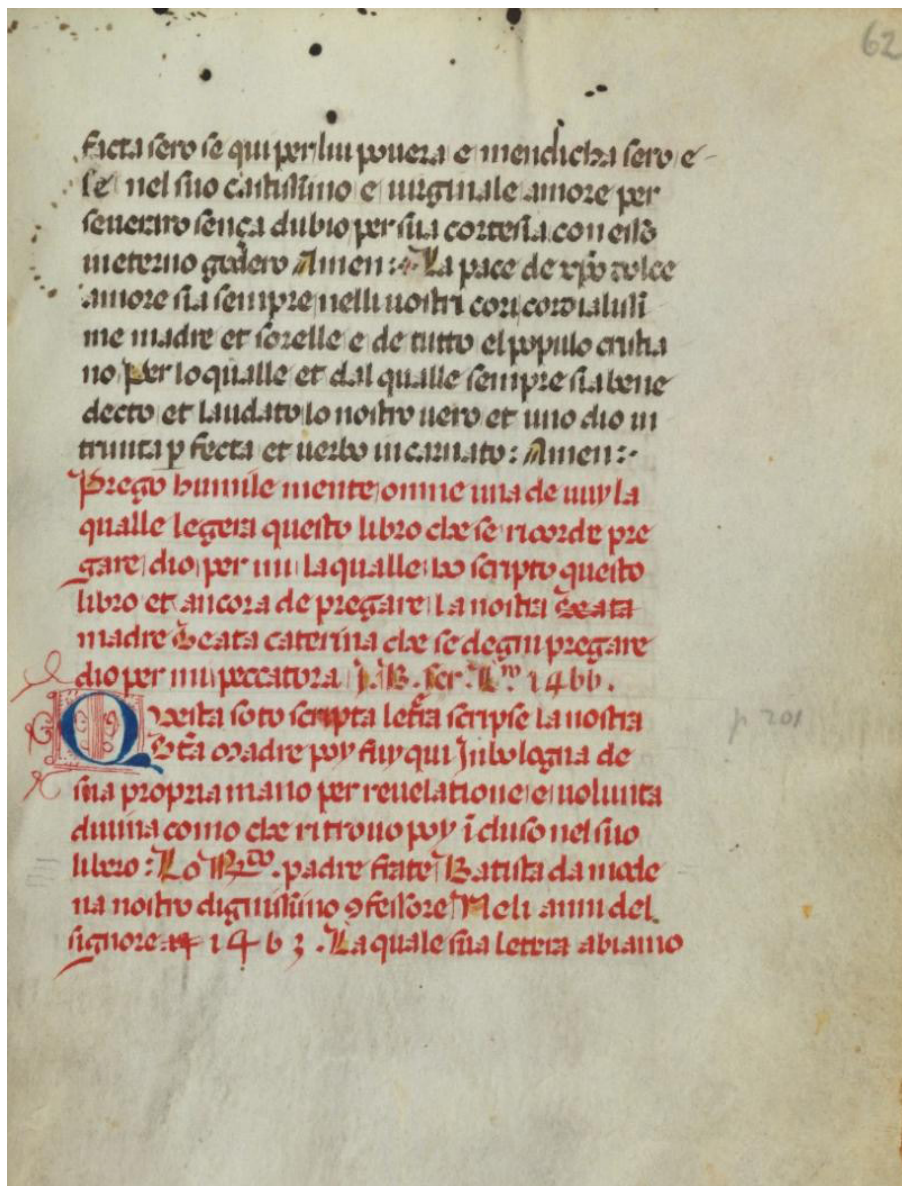 62
facta sero se qui per lui pouera e mendicha sero e
se nel suo castissimo e uirginale amore per
seueraro sença dubio per sua cortesia con esso
in eterno godero Amen : La pace de xpo dolce
amore sia sempre nelli uostri cori cordialissi
me madre et sorelle e de tutto el populo cristia
no Per lo qualle et dal qualle sempre sia bene
decto et laudato lo nostro uero et uno dio in
trinita p fecta et uerbo incarnato : Amen :
Prego humile mente omne una de uuy la
qualle legera questo libro che se ricorde pre
gare dio per mi la qualle ho scripto questo
libro et ancora de pregare la nostra beata
madre Beata caterina che se degni pregare
dio per mi peccatora . I. B. ser. 1466.
Questa soto scripta letra scripse la nostra
Bta madre poy fuy qui In bologna de
sua propria mano per reuelatione e uolunta
diuina como che ritrouo poy i cluso nel suo
libro : Lo Rdo. padre frate Batista da mode
na nostro dignissimo ꝯfessore Neli anni del
signore 1463 . La quale sua lettera abiamo
p. 201